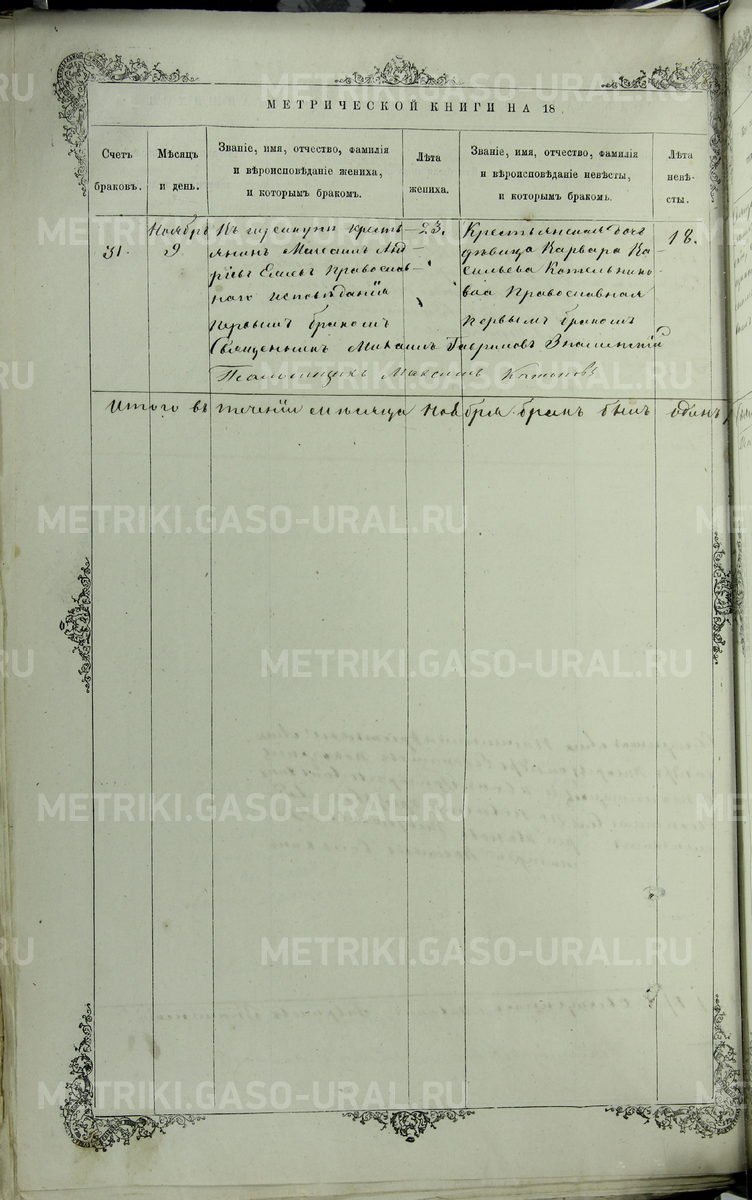 МЕТРИЧЕСКОЙ КНИГИ НА 18
Счетъ браковъ.
Мѣсяцъ и день.
Званіе, имя, отчество, фамилія и вѣроисповѣданіе жениха, и которымъ бракомъ.
Лѣта жениха.
Званіе, имя, отчество, фамилія и вѣроисповѣданіе невѣсты, и которымъ бракомъ.
Лѣта невѣсты.
31.
Ноябрь
9
кресть-
янинъ
Православ-
наго исповѣданія
первымъ бракомъ
23.
Крестьянская дочь
дѣвица Варвара Ва-
сильева Котельнико-
ваа Православная
Первымъ бракомъ
18.
Священникъ Михаилъ Гавриловъ Знаменскій
Максимъ
Итого въ теченіи мѣсяца Ноября бракъ былъ одинъ
METRIKI.GASO-URAL.RU